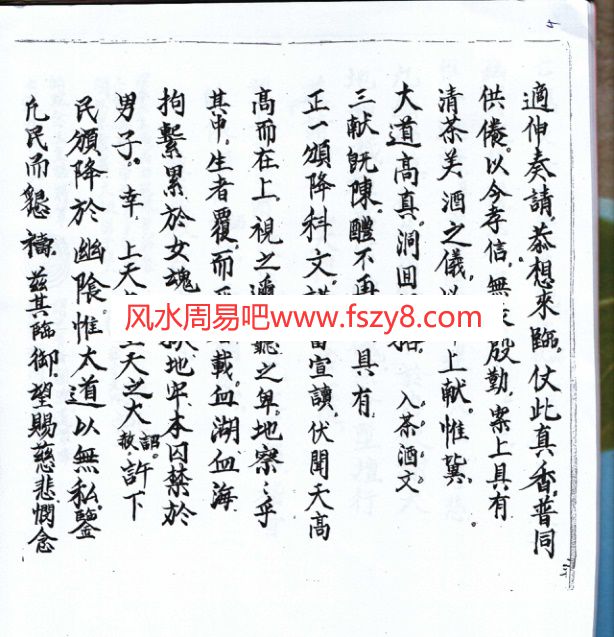 適伸奏請。恭想來臨。仗此真香。普同
供儀。以今孝信。無 殷勤。案上具有
清茶美酒之儀。 上献。惟冀。
大道高真。洞回 入茶酒文
三献既陳。醴不再 具有
正一頒降科文。 宣讀。伏聞天高
高而在上。視之 聽之卑。地察乎
其中。生者覆而 載血湖血海
拘繫累於女魂 地牢。本囚禁於
男子。幸。上天 天之大赦詔。許下
民頒降於幽陰。惟大道以無私。鑒
凡民而懇禱。茲其臨御。望賜慈悲憫念
风水周易吧www.fszy8.com